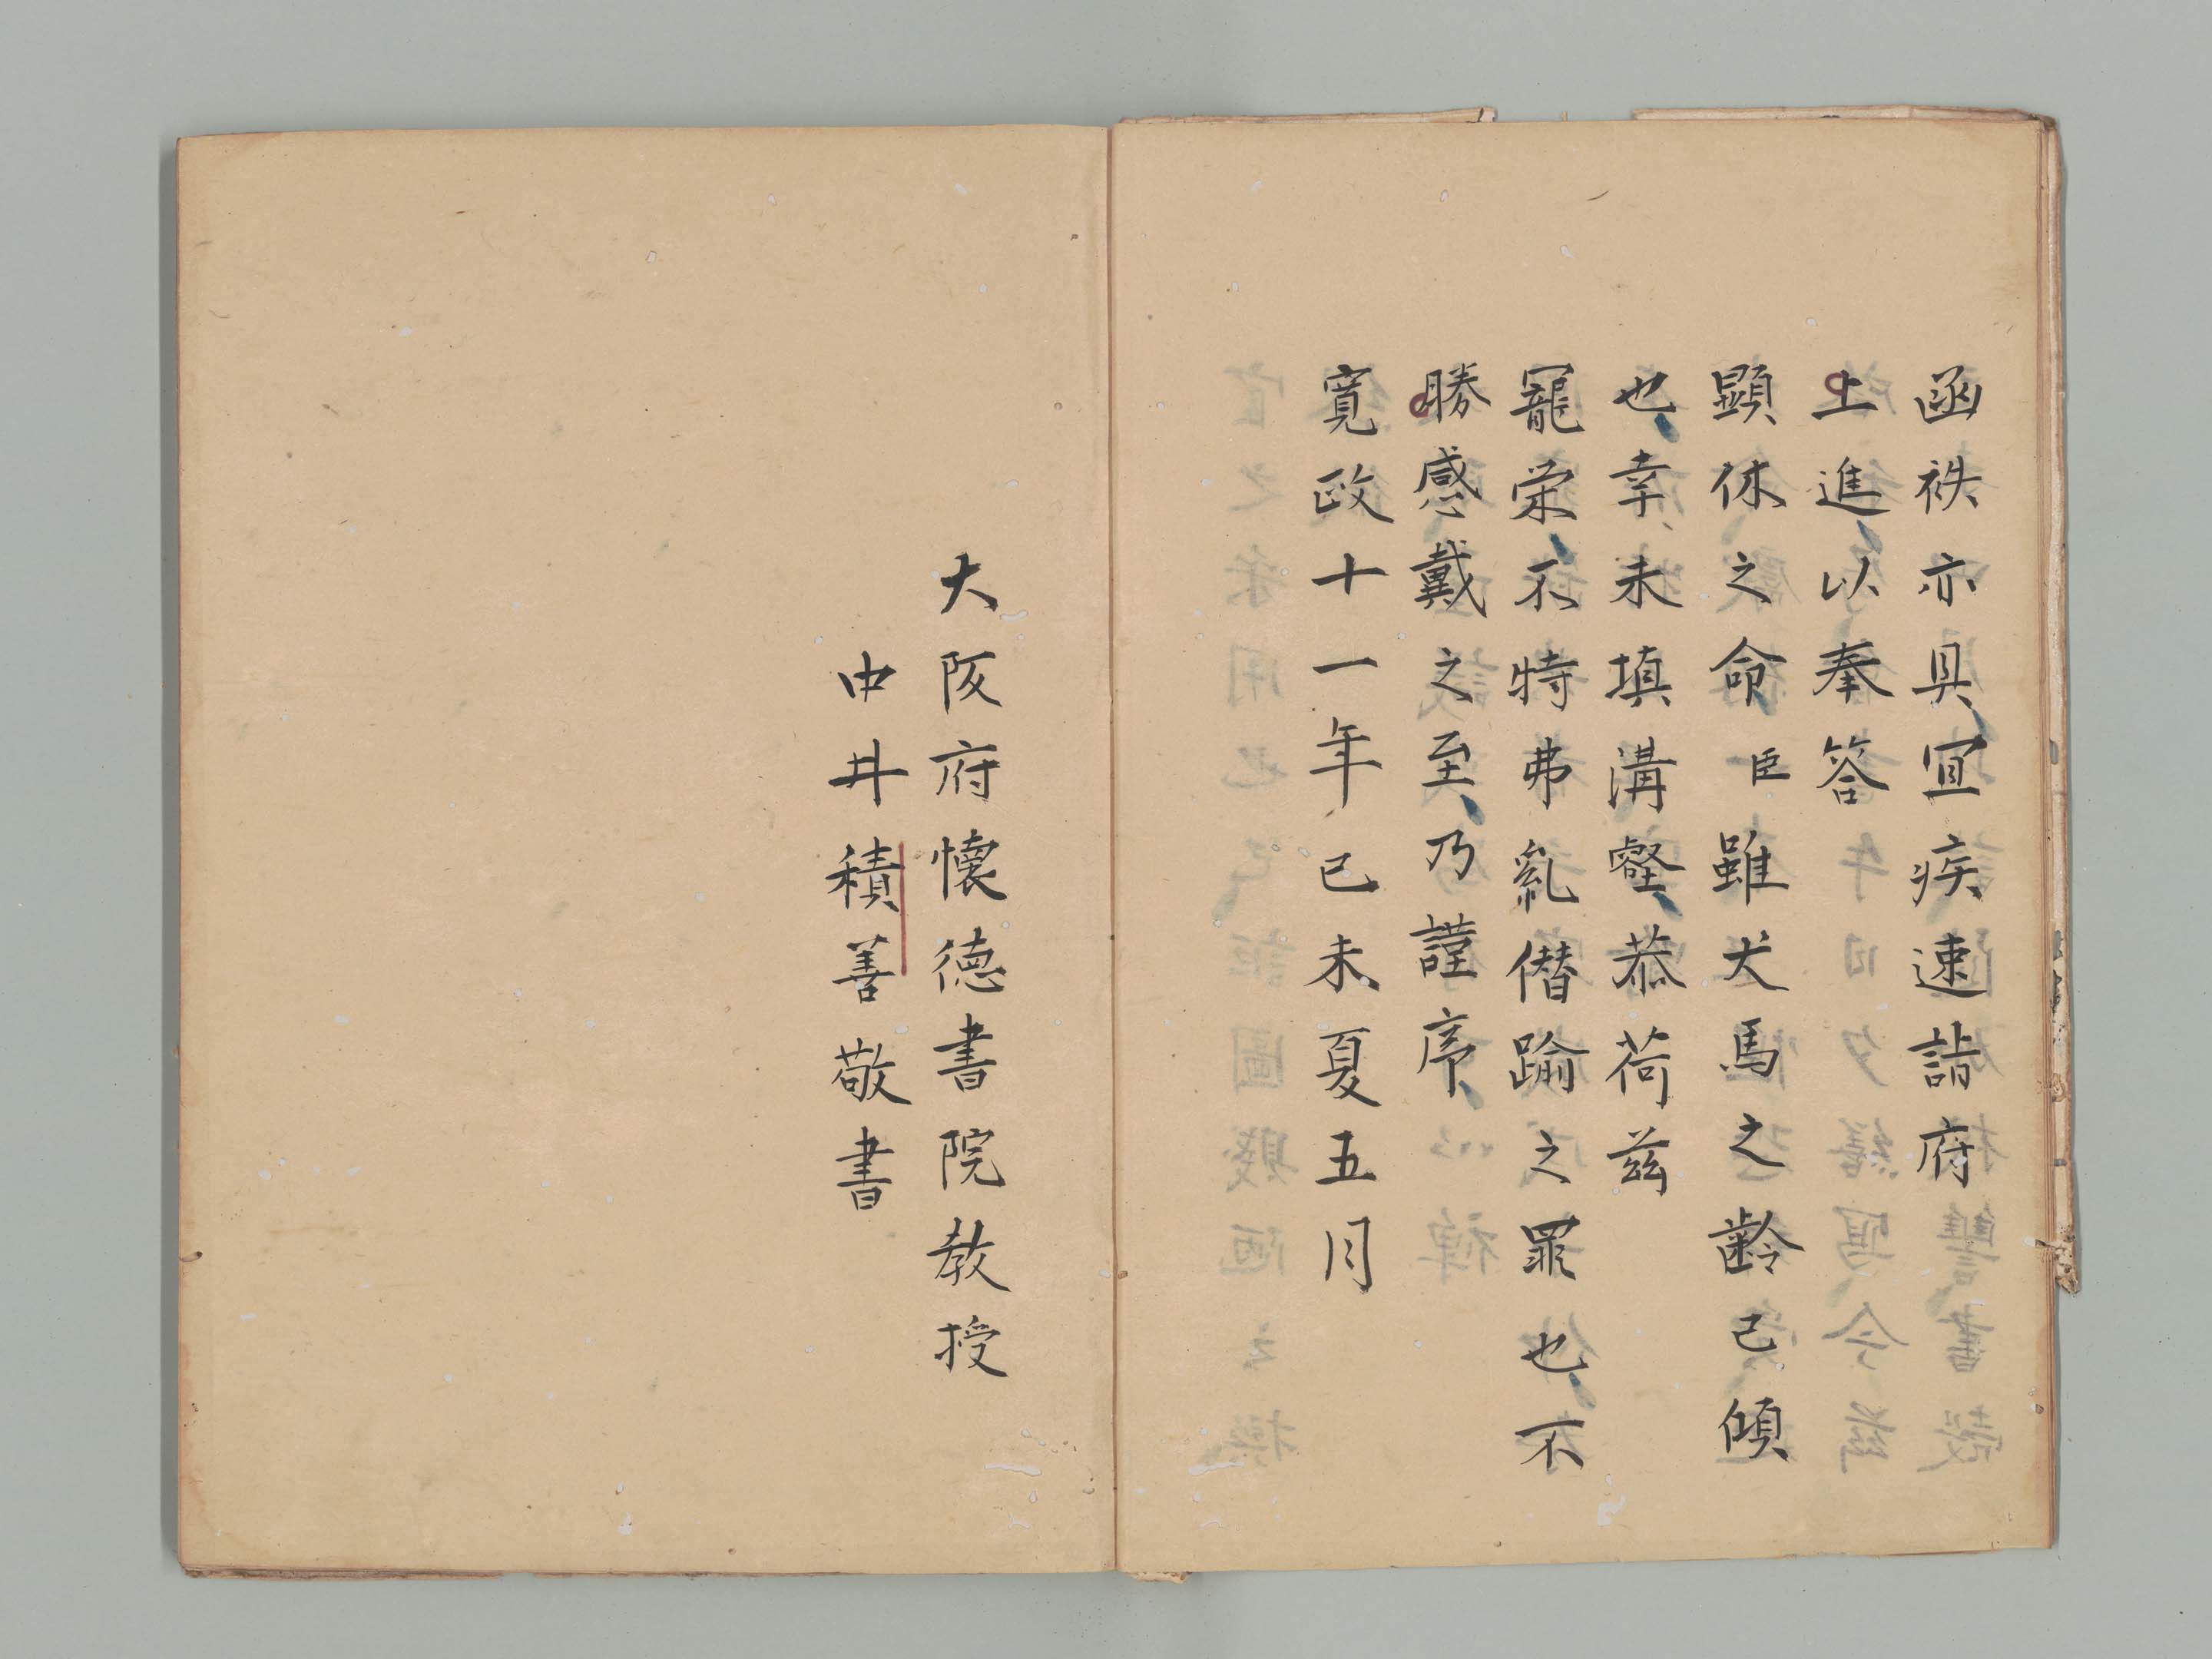 函袟亦具宜疾速詣府
上進以奉答
顕休之命臣雖犬馬之齢已傾
也幸未填溝壑恭荷茲
寵栄不特弗乱僭踰之罪也不
勝感戴之至乃謹序
寛政十一年己未夏五月
大阪府懐徳書院教授
中井積善敬書